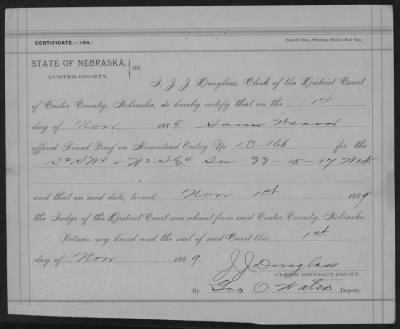 CERTIFICATE.—104.
STATE OF NEBRASKA, ss.
CUSTER COUNTY.
I, J J Douglass, Clerk of the District Court
of Custer County, Nebraska, do hereby certify that on the 1st
day of Nov 1889,
offered Final Proof on Homestead Entry No for the
and that on said date, to-wit: Nov 1st 1889
the Judge of the District Court was absent from said Custer County, Nebraska.
Witness my hand and the seal of said Court this 1st
day of Nov 1889
J J Douglass
CLERK DISTRICT COURT.
By Geo O Deputy.